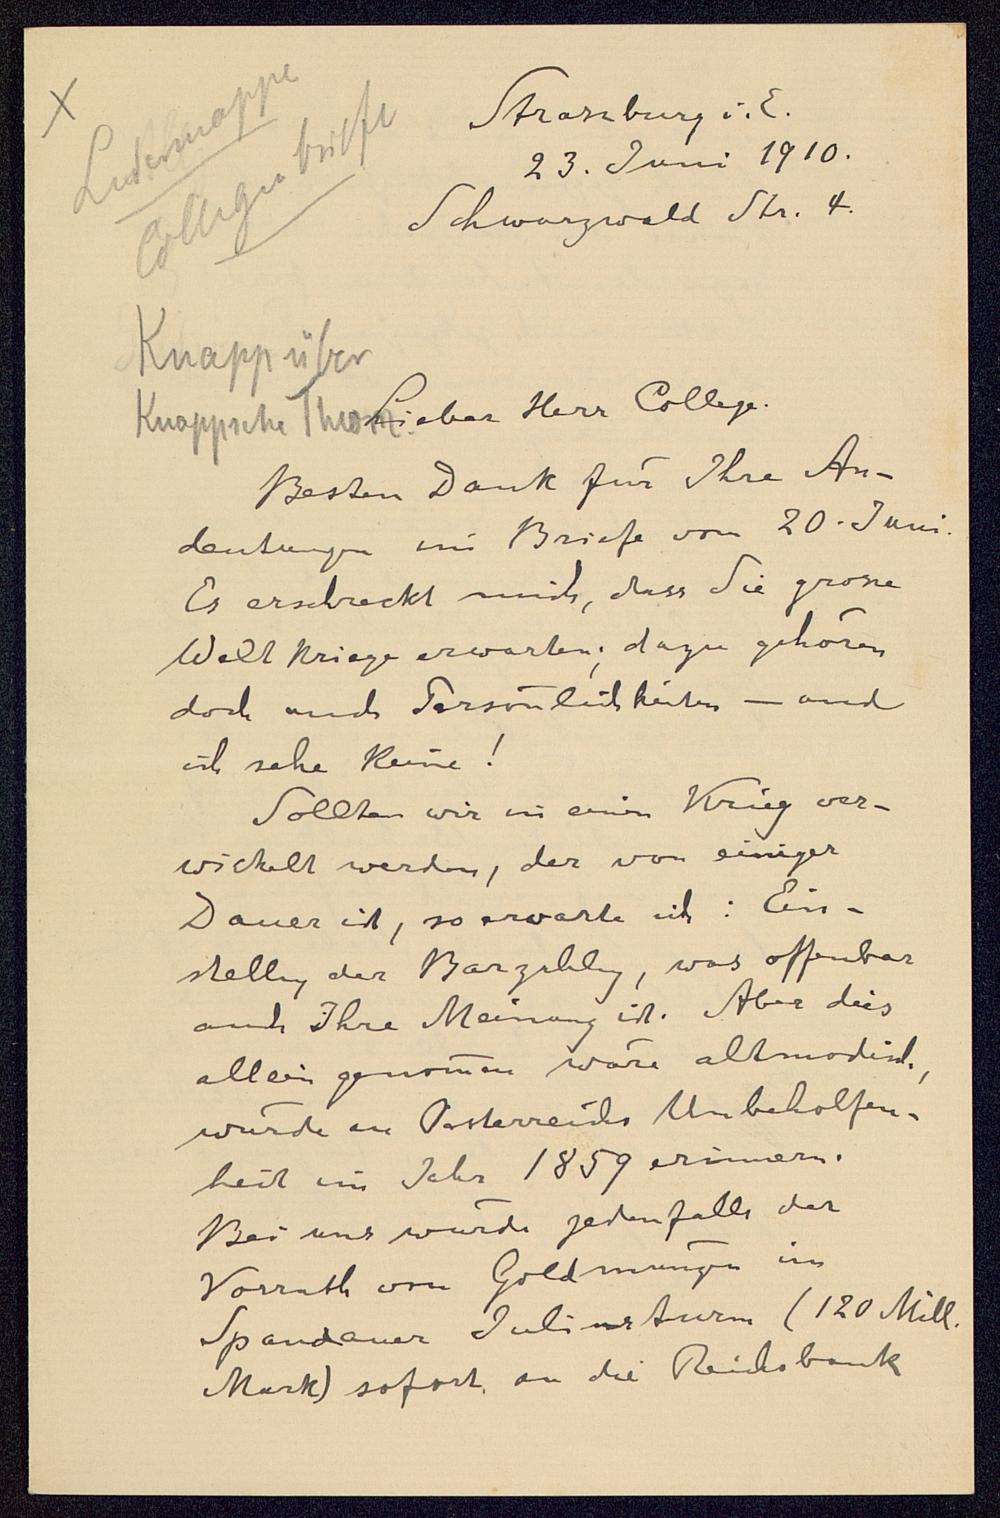 Straszburg i. E.
23. Juni 1910.
Schwarzwald Str. 4.
Collegenbriefe
Knapp über
Knappsche
Lieber Herr College.
Besten Dank für Ihre An-
deutungen im Briefe vom 20. Juni.
Es erschreckt mich, dass Sie grosse
Weltkriege erwarten; dazu gehören
doch auch Persönlichkeiten — und
ich sehe keine!
Sollten wir in einen Krieg ver-
wickelt werden, der von einiger
Dauer ist, so erwarte ich: Ein-
stellg der Barzahlg, was offenbar
auch Ihre Meinung ist. Aber dies
allein genommen wäre altmodisch,
würde an Oesterreichs Unbeholfen-
heit im Jahr 1859 erinnern.
Bei uns würde jedenfalls der
Vorrath von Goldmünzen im
Spandauer Juliusturm (120 Mill.
Mark) sofort an die Reichsbank